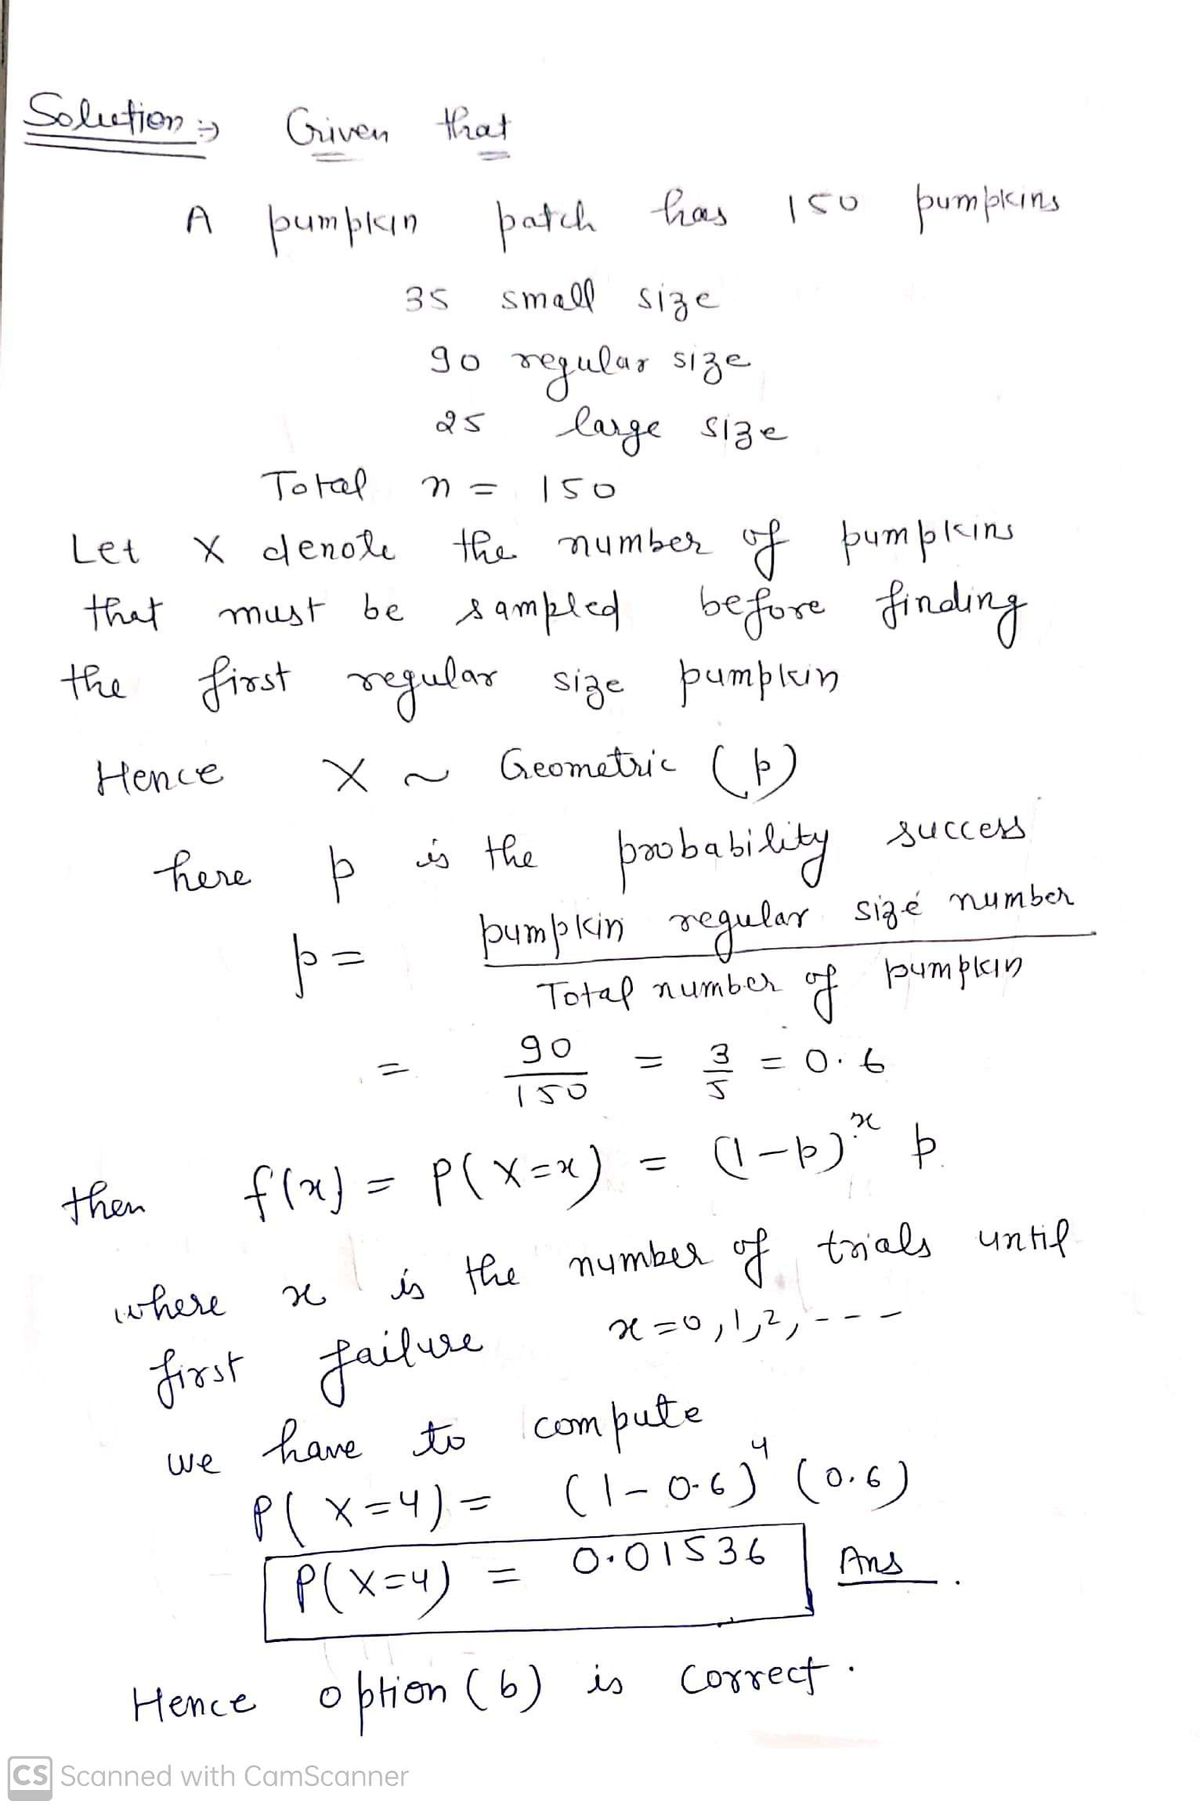 Solution :⇒ Given that
A pumpkin patch has 150 pumpkins
35 small size
90 regular size
25 large size
Total n = 150
Let X denote the number of pumpkins
that must be sampled before finding
the first regular size pumpkin
Hence X ~ Geometric (p)
here p is the probability success
p = pumpkin regular size number
Total number of pumpkin
= 90/150 = 3/5 = 0.6
then f(x) = P(X=x) = (1-p)^x p.
where x is the number of trials until
first failure x=0,1,2,---
we have to compute
P(X=4) = (1-0.6)^4 (0.6)
P(X=4) = 0.01536 Ans.
Hence option (b) is correct.
CS Scanned with CamScanner